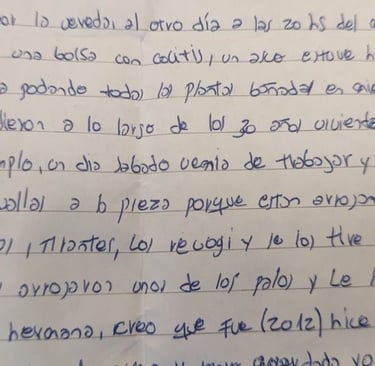 or la vereda, al otro día a las 20 hs del
una bolsa con colitis, un año estuve h
podando todas las plantas bañadas en
dieron a lo largo de los 30 años viviente
mplo, un dia sabado venia de trabajar y
a la pieza porque estan arrojan
Tirantes, Los recogi y se los tire
arrojaron unos de los palos y Le
hermana, creo que fue (2012) hice